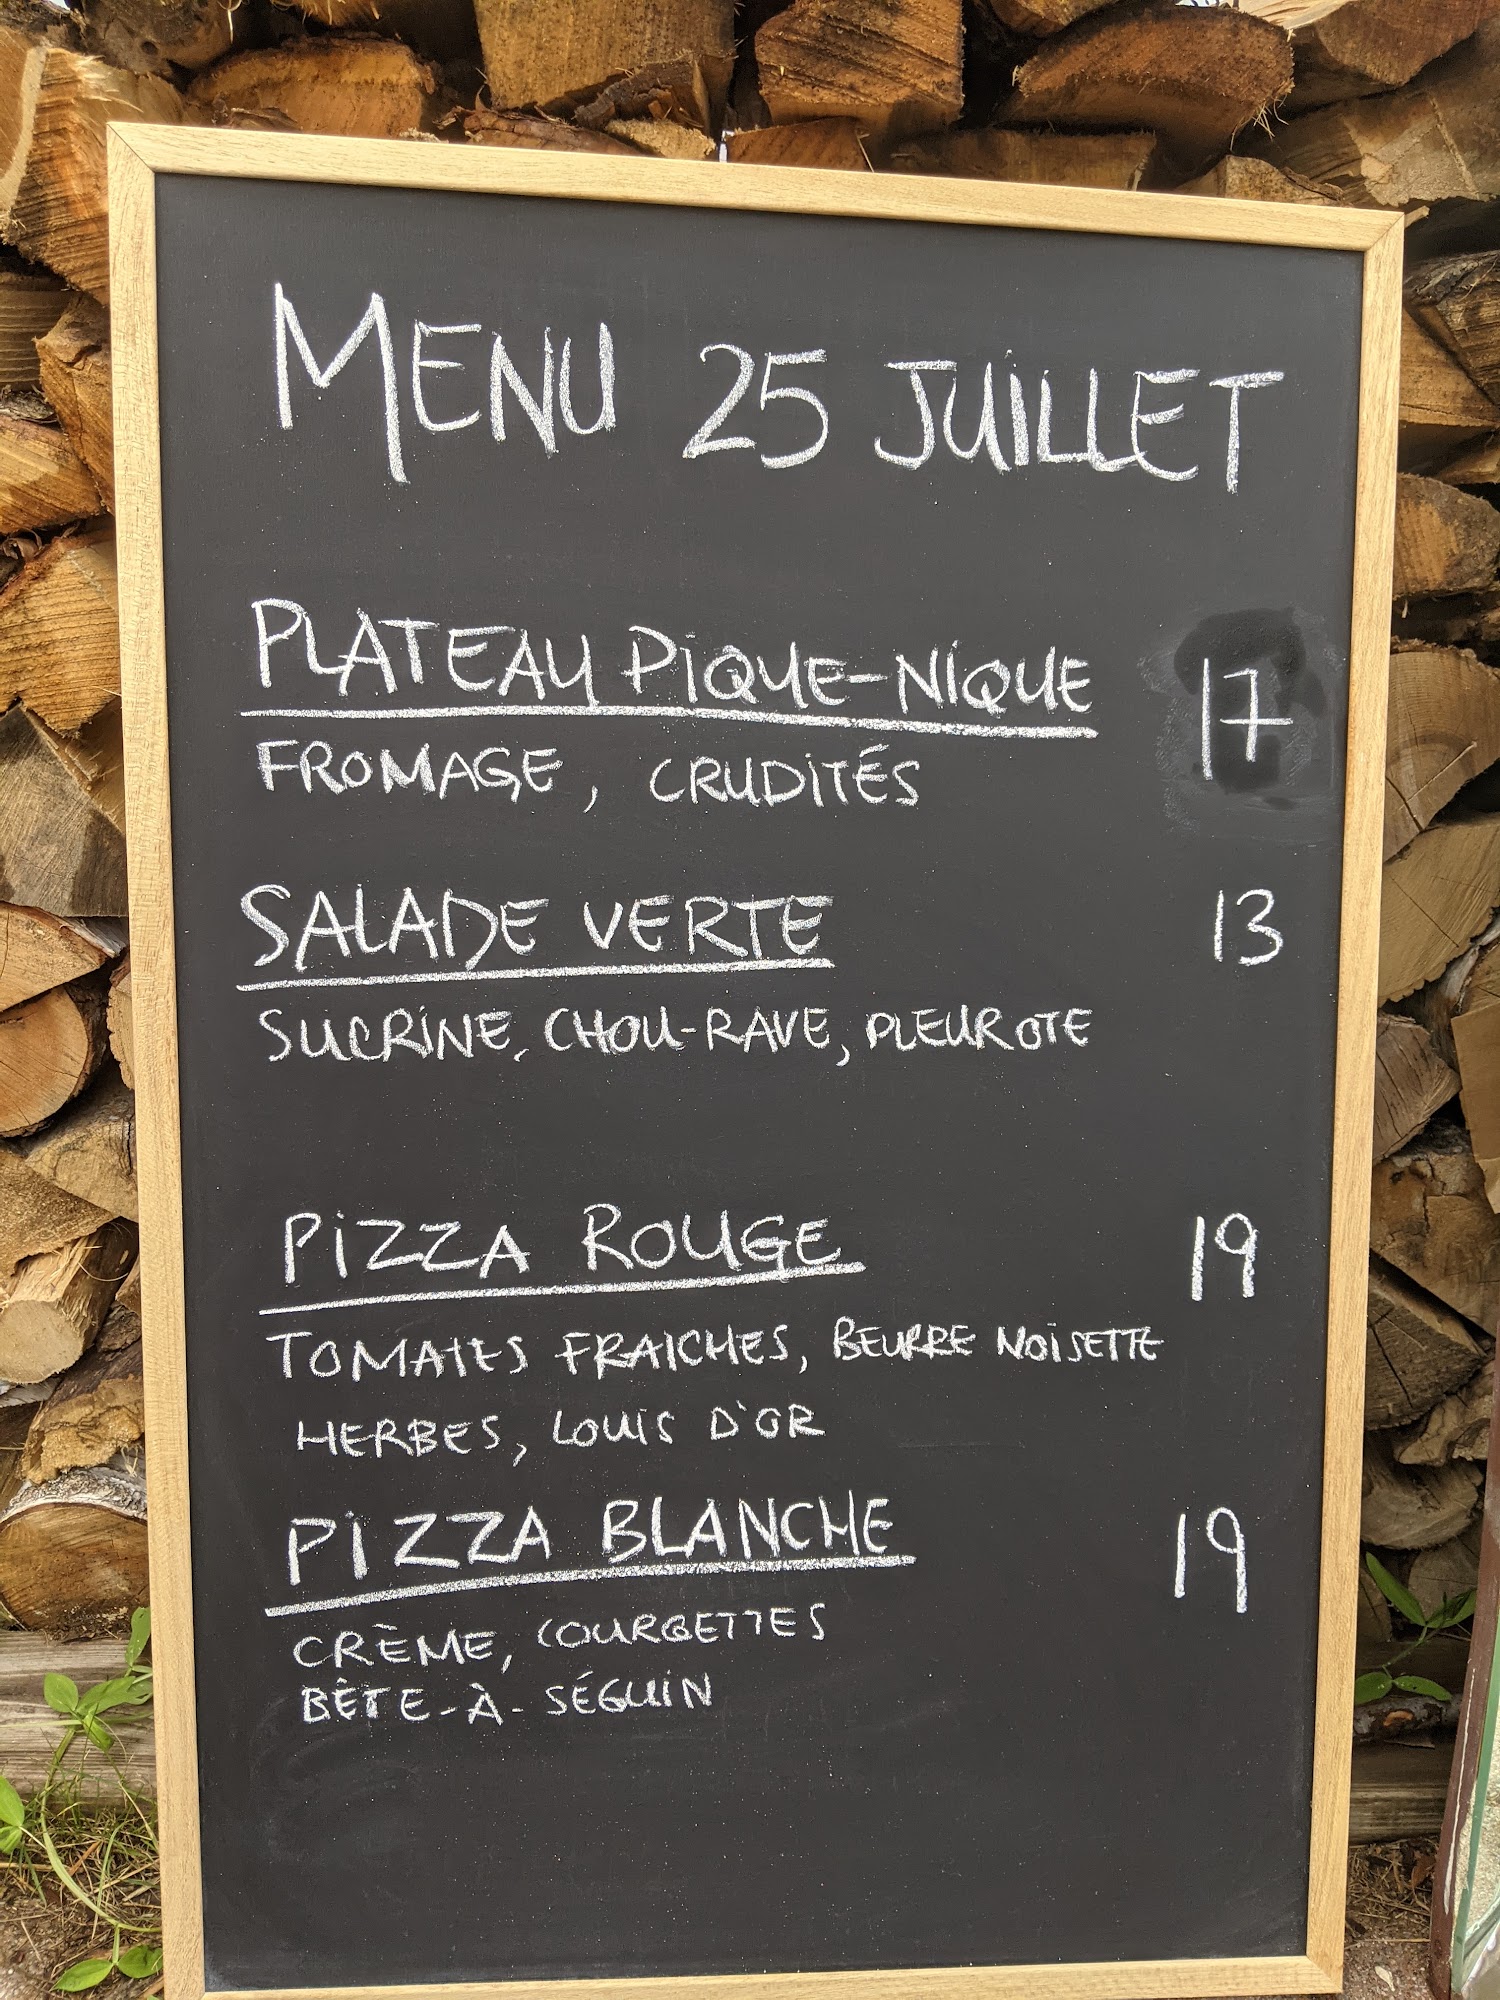 MENU 25 JUILLET
PLATEAU PIQUE-NIQUE 17
FROMAGE, CRUDITÉS
SALADE VERTE 13
SUCRINE, CHOU-RAVE, PLEUROTE
PIZZA ROUGE 19
TOMATES FRAICHES, BEURRE NOISETTE
HERBES, LOUIS D'OR
PIZZA BLANCHE 19
CRÈME, COURGETTES
BÊTE-À-SÉGUIN